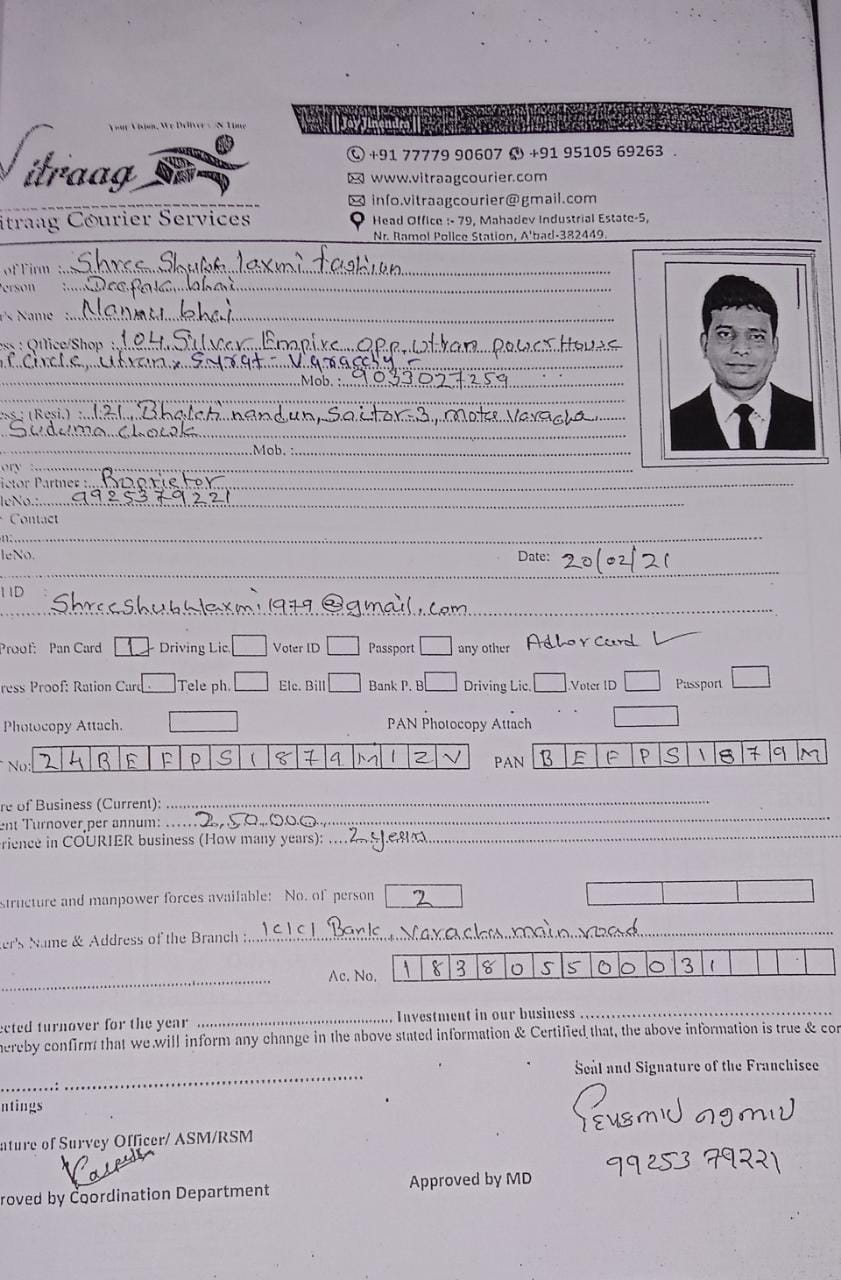 Your Vision, We Deliver On Time
|| Jay Jinendra ||
Vitraag
+91 77779 90607 +91 95105 69263
www.vitraagcourier.com
info.vitraagcourier@gmail.com
itraag Courier Services
Head Office :- 79, Mahadev Industrial Estate-5,
Nr. Ramol Police Station, A'bad-382449.
of Firm : Shree Shubh laxmi fashion
erson : Deepak bhai
r's Name : Mannu bhai
ess : Office/Shop : 104, Silver Empire opp, utran power House
Circle, utran, Surat - Varacchy -
Mob. : 9033027259
ess : (Resi.) : 121, Bhakti nandun, Saitor-3, mota varacha
Suduma chowk
Mob. :
ory :
ietor Partner : Roprietor
leNo.: 9925379221
Contact
n:
leNo.
Date: 20/02/21
l ID : Shreeshubhlaxmi1979@gmail.com
Proof: Pan Card Driving Lic. Voter ID Passport any other Adhor card ✓
ress Proof: Ration Card Tele ph. Ele. Bill Bank P. B Driving Lic. Voter ID Passport
Photocopy Attach. PAN Photocopy Attach
No: 24BEFPS1879M1ZV PAN BEFPS1879M
re of Business (Current):
ent Turnover per annum: 2,50,000
rience in COURIER business (How many years): 2 years
structure and manpower forces available: No. of person 2
er's Name & Address of the Branch : ICICI Bank, varacha main road
Ac. No. 183805500031
ected turnover for the year Investment in our business
hereby confirm that we will inform any change in the above stated information & Certified that, the above information is true & cor
Seal and Signature of the Franchisee
ntings
ature of Survey Officer/ ASM/RSM
99253 79221
roved by Coordination Department
Approved by MD